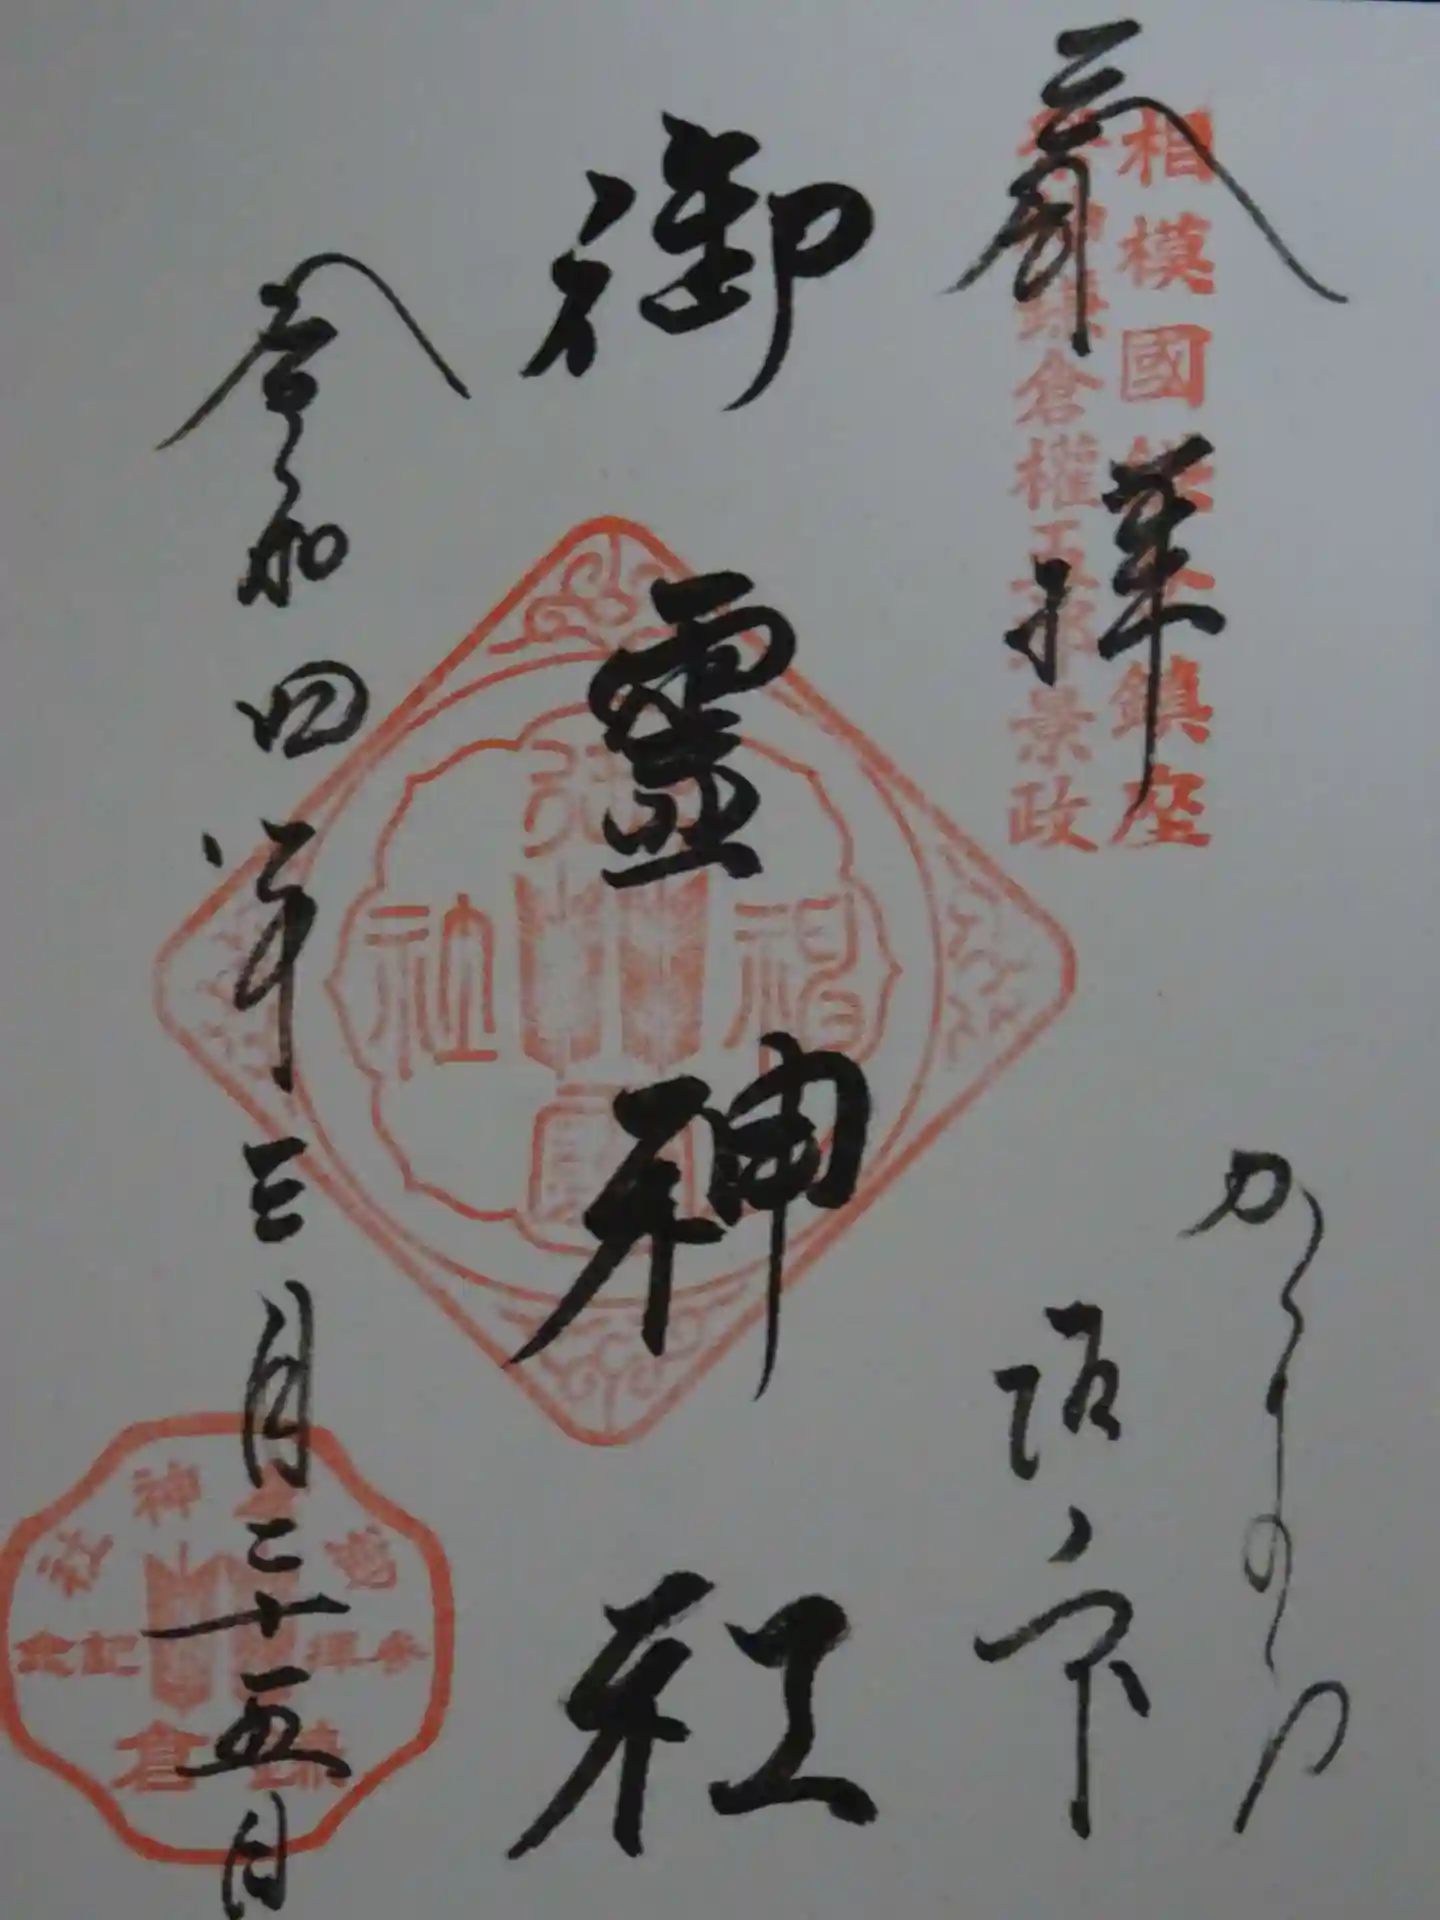 奉拝
相模國鎌倉鎮座
祭神鎌倉權五郎景政
かまくら
坂ノ下
御霊神社
令和四年三月二十五日
御霊神社
参拝記念
鎌倉